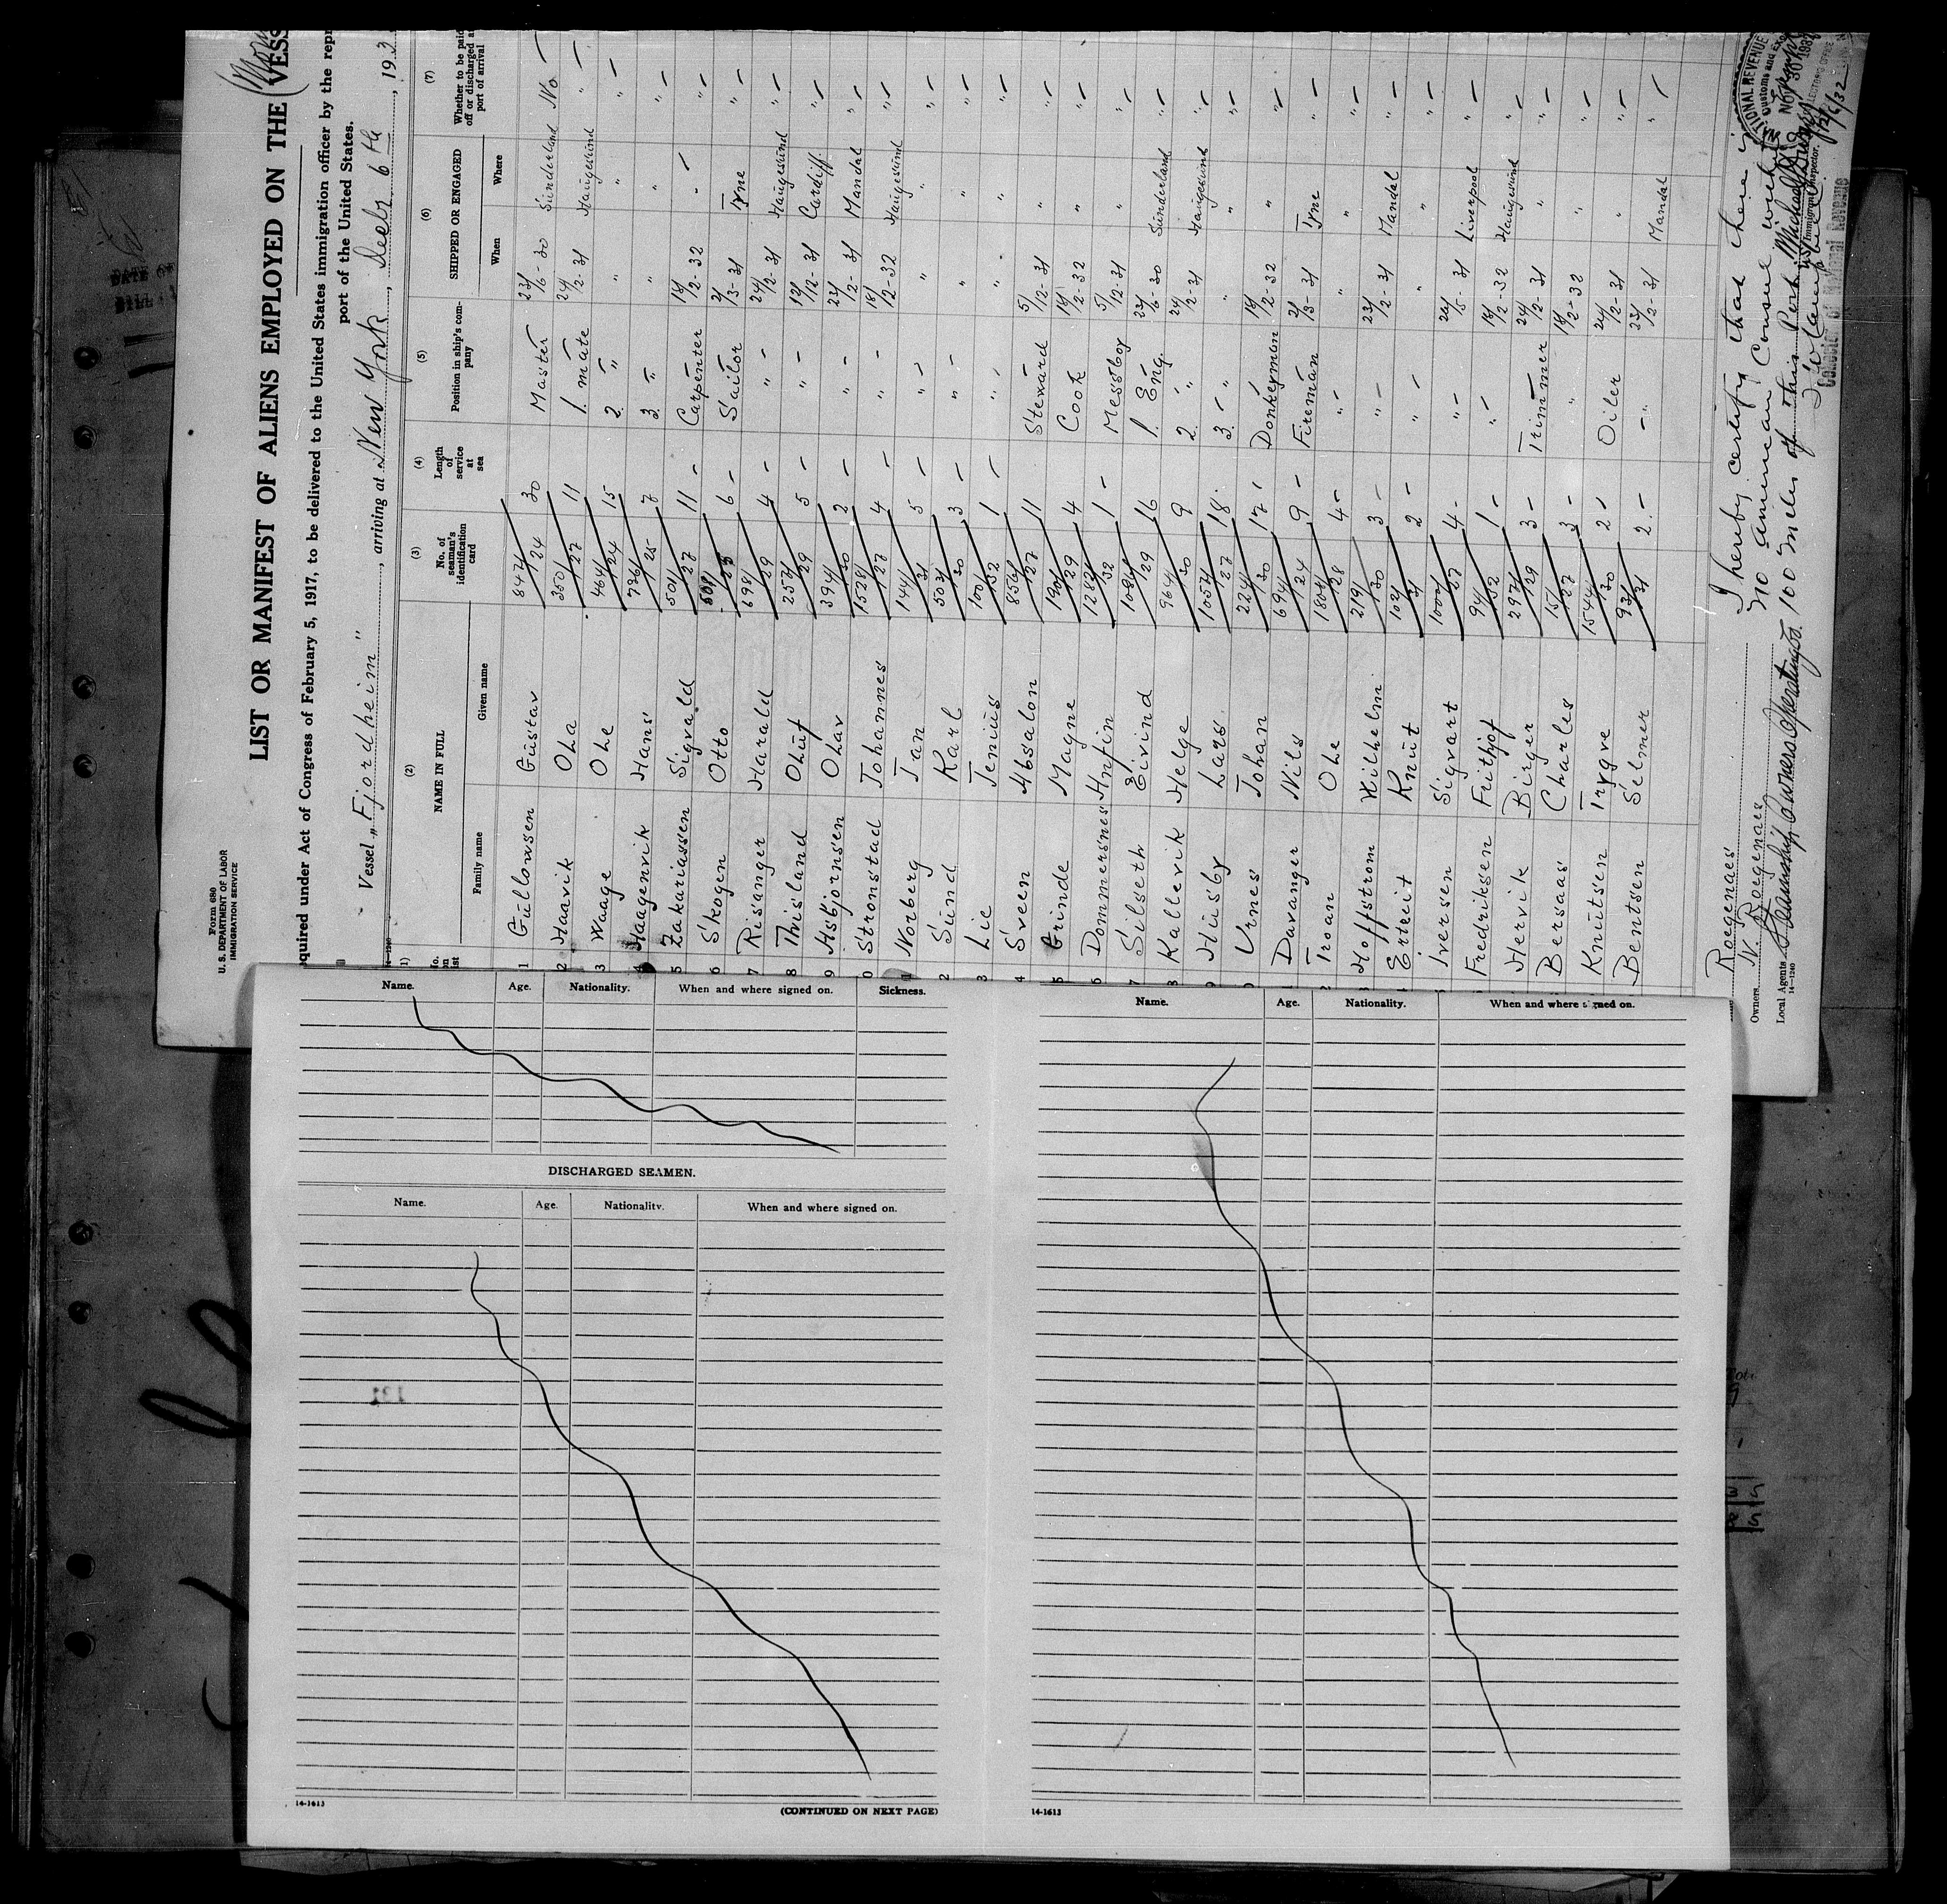 Form 680
U. S. DEPARTMENT OF LABOR
IMMIGRATION SERVICE
LIST OR MANIFEST OF ALIENS EMPLOYED ON THE VESS
equired under Act of Congress of February 5, 1917, to be delivered to the United States immigration officer by the repr
port of the United States.
Vessel „Fjordheim", arriving at New York, Decbr 6th, 193
(2) (3) (4) (5) (6) (7)
NAME IN FULL
Family name Given name
No. of seaman's identification card
Length of service at sea
Position in ship's company
SHIPPED OR ENGAGED
When Where
Whether to be paid off or discharged at port of arrival
1 Gullowsen Gustav 847/24 30 Master 23/6-30 Sunderland No
2 Haavik Ola 350/27 11 1. mate 24/2-31 Haugesund "
3 Waage Ole 464/24 15 2. " " " "
4 Haagenvik Hans 736/25 7 3. " " " "
5 Zakariassen Sigvald 501/27 11 Carpenter 18/2-32 " "
6 Skogen Otto 6 Sailor 2/3-31 Tyne "
7 Risanger Harald 698/29 4 " 24/2-31 Haugesund "
8 Thisland Oluf 257/29 5 " 12/12-31 Cardiff. "
9 Asbjornsen Olav 394/30 2 " 23/2-31 Mandal "
0 Stronstad Johannes 1528/27 4 " 18/2-32 Haugesund "
1 Norberg Jan 144/31 5 " " " "
2 Sund Karl 503/30 3 " " " "
3 Lie Jenius 100/32 1 " " " "
4 Sveen Absalon 856/27 11 Steward 5/12-31 " "
5 Grinde Magne 190/29 4 Cook 18/2-32 " "
6 Dommersnes Antin 1282/32 1 Messboy 5/12-31 " "
7 Silseth Eivind 1084/29 16 1. Eng. 23/6-30 Sunderland "
8 Kallevik Helge 964/30 9 2. " 24/2-31 Haugesund "
9 Husby Lars 1057/27 18 3. " " " "
0 Urnes Johan 224/30 17 Donkeyman 18/2-32 " "
Davanger Nils 694/24 9 Fireman 2/3-31 Tyne "
Troan Ole 1804/28 4 " " "
Hoffstrom Wilhelm 219/30 3 " 23/2-31 Mandal "
Knut 102/31 2 " " " "
Iversen Sigvart 1002/27 4 " Liverpool "
Fredriksen Frithjof 94/32 1 " 18/2-32 Haugesund "
Hervik Birger 297/29 3 Trimmer 24/2-31 " "
Bersaas Charles 15/27 3 " 18/2-32 " "
Knutsen Trygve 1544/30 2 Oiler 24/2-31 " "
Bentsen Selmer 93/31 2 " 23/2-31 Mandal "
Roegenaes
Owners N. Roegenaes
Local Agents Steamship Owners Operating Co.
14-1240
I hereby certify that there is
no American Consul within
100 miles of this Port.
Immigrant Inspector.
12/6/32
NATIONAL REVENUE
Customs and Excise
NOV 30 1932
Collector of National Revenue
Name. Age. Nationality. When and where signed on. Sickness.
DISCHARGED SEAMEN.
Name. Age. Nationality. When and where signed on.
14-1613
(CONTINUED ON NEXT PAGE)
Name. Age. Nationality. When and where signed on.
14-1613